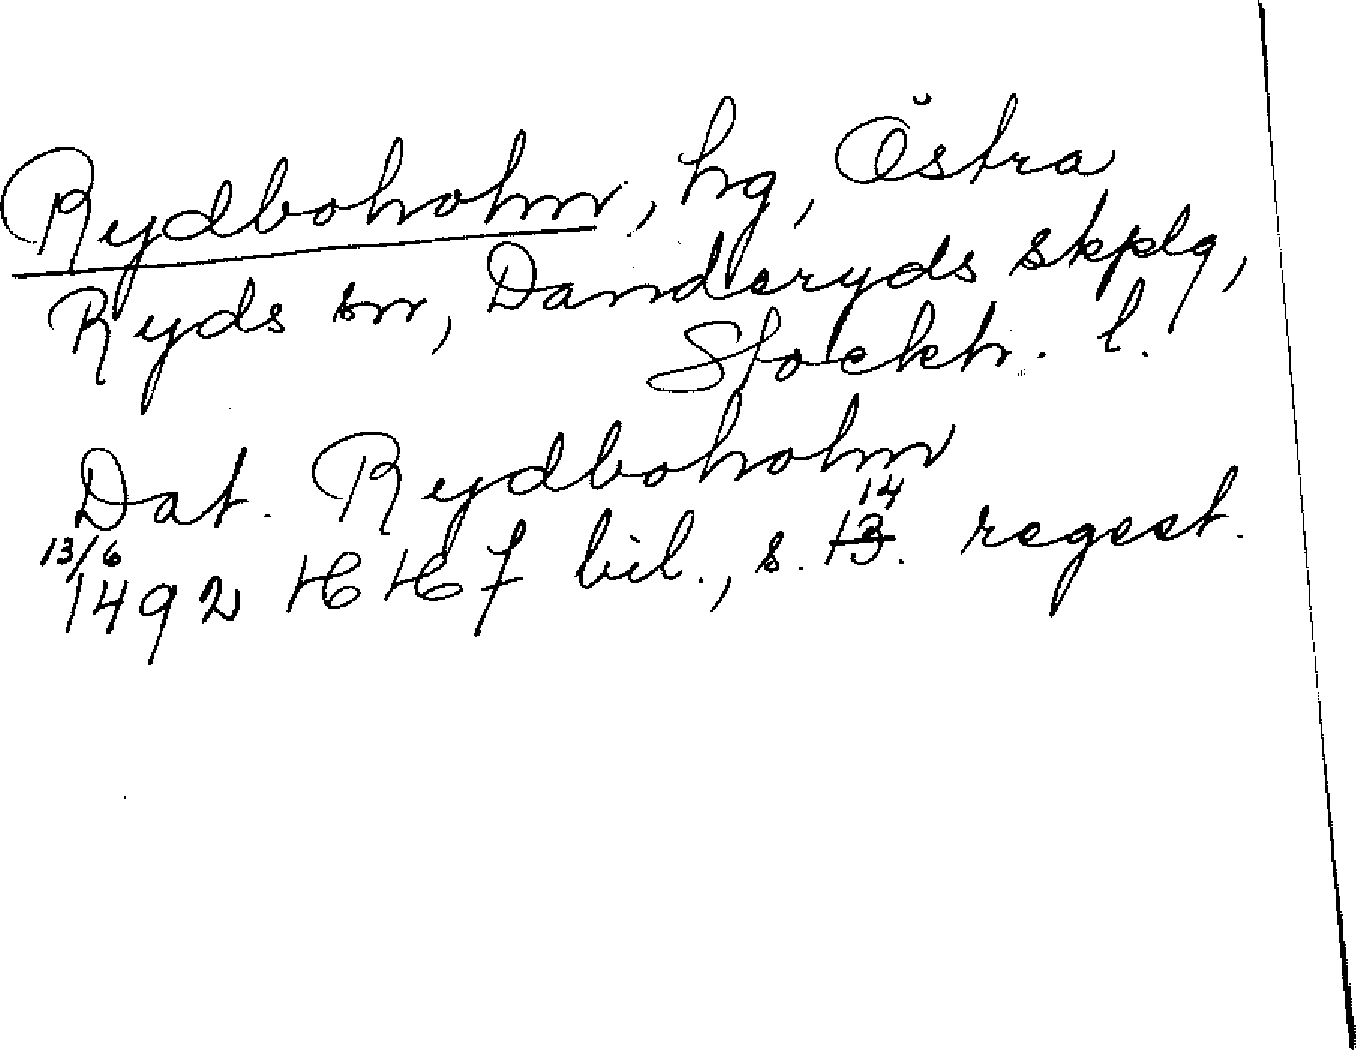 Rydboholm, hg, Östra
Ryds sn, Danderyds skplg,
Stockh. l.
Dat. Rydboholm
13/6 14
1492 HH 7 bil., s. 13. regest.